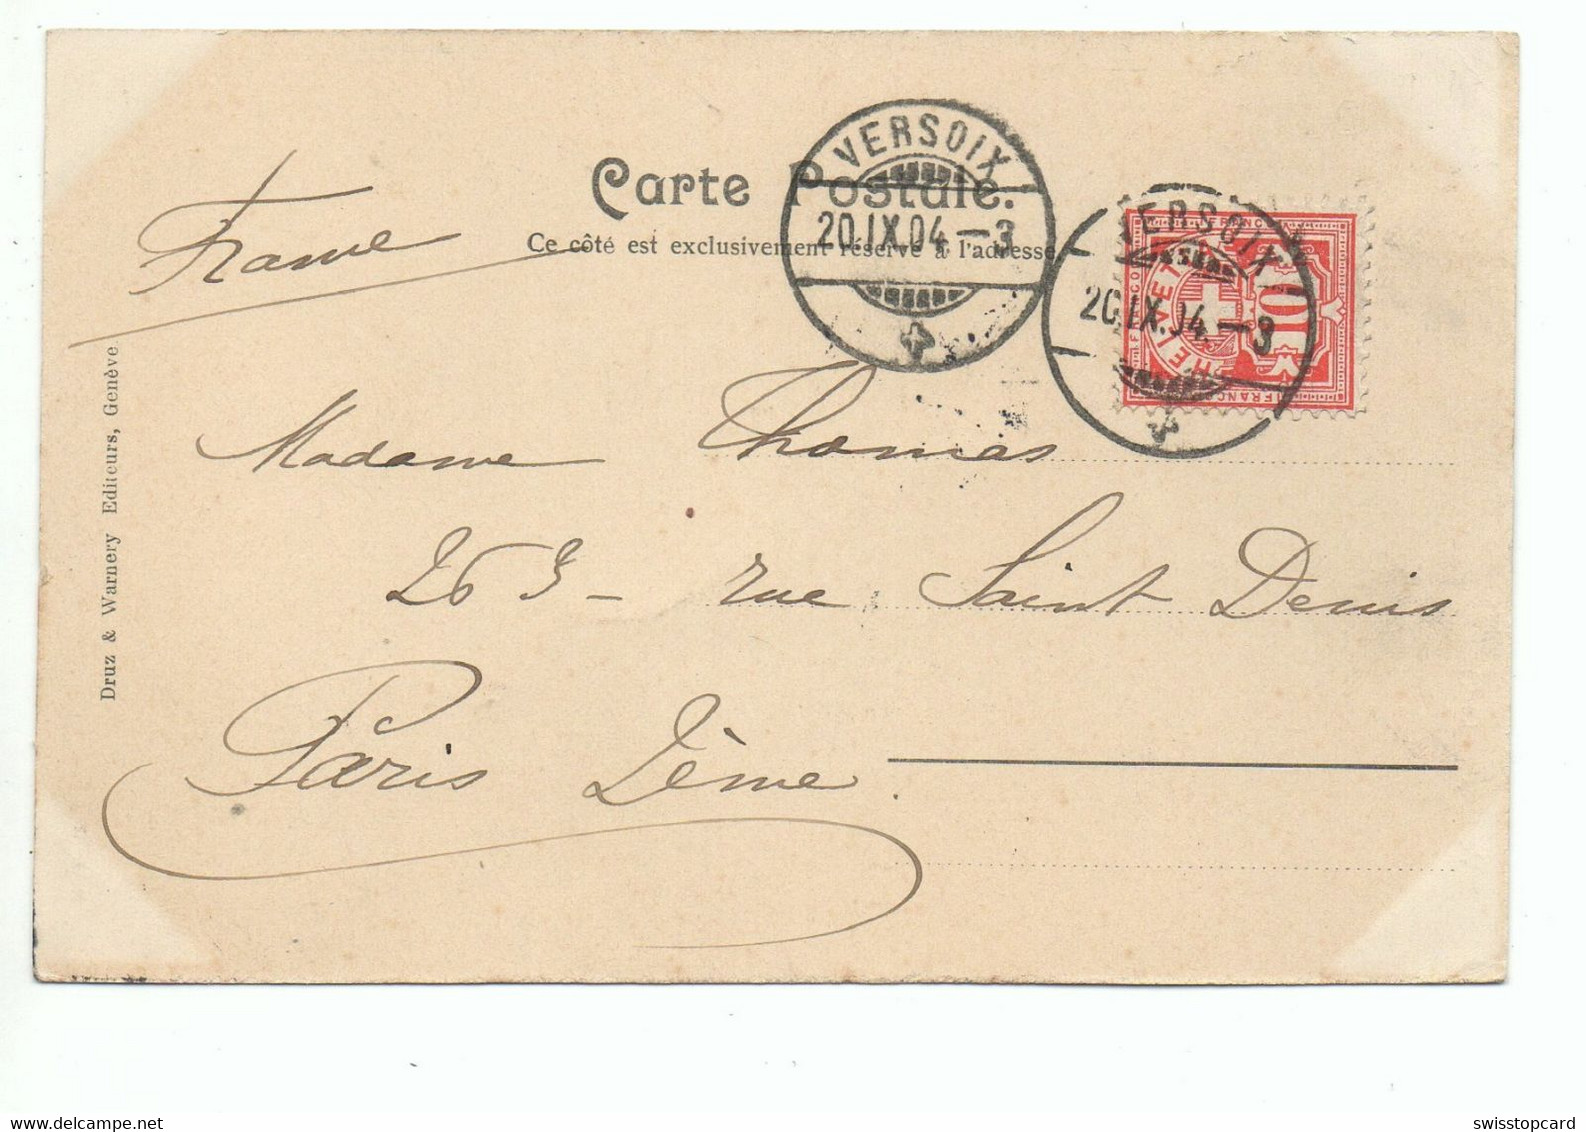 Carte Postale.
Ce côté est exclusivement réservé à l'adresse.
VERSOIX
20.IX.04.-3
VERSOIX
20.IX.04.-3
FRANCO
HELVETIA
10
FRANCO
France
Madame Thomas
263 - rue Saint Denis
Paris 2ème
Druz & Warnery Editeurs, Genève
swisstopcard